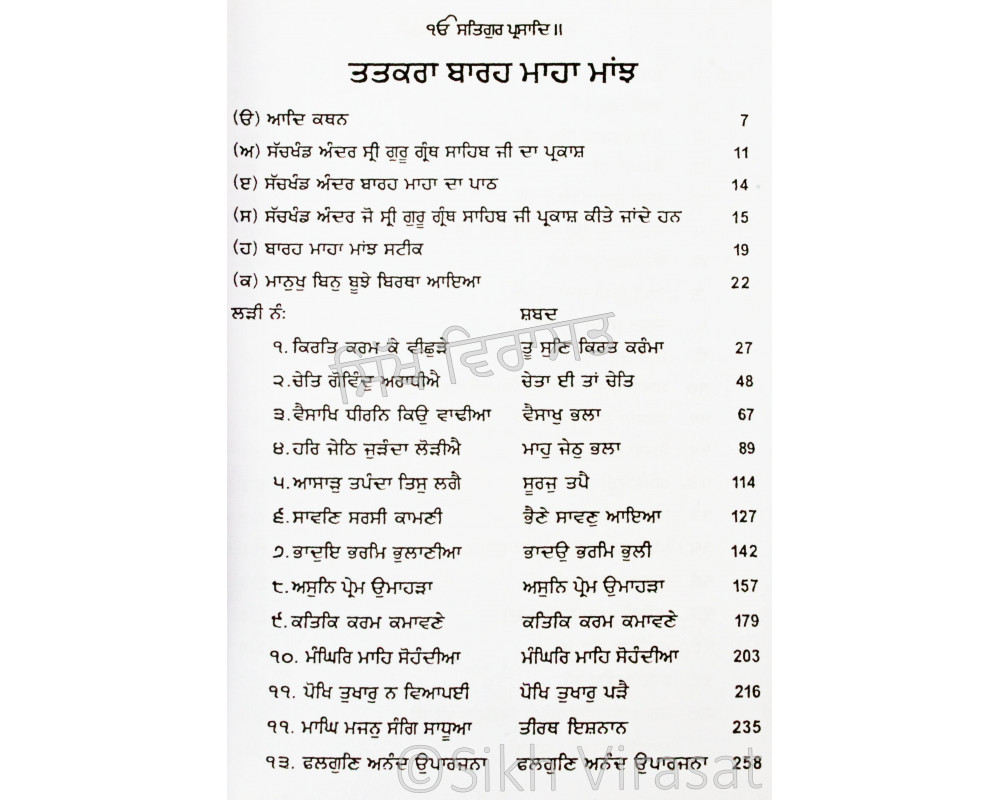 ੴ ਸਤਿਗੁਰ ਪ੍ਰਸਾਦਿ॥
ਤਤਕਰਾ ਬਾਰਹ ਮਾਹਾ ਮਾਂਝ
(ੳ) ਆਦਿ ਕਥਨ 7
(ਅ) ਸੱਚਖੰਡ ਅੰਦਰ ਸ੍ਰੀ ਗੁਰੂ ਗ੍ਰੰਥ ਸਾਹਿਬ ਜੀ ਦਾ ਪ੍ਰਕਾਸ਼ 11
(ੲ) ਸੱਚਖੰਡ ਅੰਦਰ ਬਾਰਹ ਮਾਹਾ ਦਾ ਪਾਠ 14
(ਸ) ਸੱਚਖੰਡ ਅੰਦਰ ਜੋ ਸ੍ਰੀ ਗੁਰੂ ਗ੍ਰੰਥ ਸਾਹਿਬ ਜੀ ਪ੍ਰਕਾਸ਼ ਕੀਤੇ ਜਾਂਦੇ ਹਨ 15
(ਹ) ਬਾਰਹ ਮਾਹਾ ਮਾਂਝ ਸਟੀਕ 19
(ਕ) ਮਾਨੁਖੁ ਬਿਨੁ ਬੂਝੇ ਬਿਰਥਾ ਆਇਆ 22
ਲੜੀ ਨੰ: ਸ਼ਬਦ
੧. ਕਿਰਤਿ ਕਰਮ ਕੇ ਵੀਛੁੜੇ ਤੂ ਸੁਣਿ ਕਿਰਤ ਕਰੰਮਾ 27
੨. ਚੇਤਿ ਗੋਵਿੰਦੁ ਅਰਾਧੀਐ ਚੇਤਾ ਈ ਤਾਂ ਚੇਤਿ 48
੩. ਵੈਸਾਖਿ ਧੀਰਨਿ ਕਿਉ ਵਾਢੀਆ ਵੈਸਾਖੁ ਭਲਾ 67
੪. ਹਰਿ ਜੇਠਿ ਜੁੜੰਦਾ ਲੋੜੀਐ ਮਾਹੁ ਜੇਠੁ ਭਲਾ 89
੫. ਆਸਾੜੁ ਤਪੰਦਾ ਤਿਸੁ ਲਗੈ ਸੂਰਜੁ ਤਪੈ 114
੬. ਸਾਵਣਿ ਸਰਸੀ ਕਾਮਣੀ ਭੈਣੇ ਸਾਵਣੁ ਆਇਆ 127
੭. ਭਾਦੁਇ ਭਰਮਿ ਭੁਲਾਣੀਆ ਭਾਦਉ ਭਰਮਿ ਭੁਲੀ 142
੮. ਅਸੁਨਿ ਪ੍ਰੇਮ ਉਮਾਹੜਾ ਅਸੁਨਿ ਪ੍ਰੇਮ ਉਮਾਹੜਾ 157
੯. ਕਤਿਕਿ ਕਰਮ ਕਮਾਵਣੇ ਕਤਿਕਿ ਕਰਮ ਕਮਾਵਣੇ 179
੧੦. ਮੰਘਿਰਿ ਮਾਹਿ ਸੋਹੰਦੀਆ ਮੰਘਿਰਿ ਮਾਹਿ ਸੋਹੰਦੀਆ 203
੧੧. ਪੋਖਿ ਤੁਖਾਰੁ ਨ ਵਿਆਪਈ ਪੋਖਿ ਤੁਖਾਰੁ ਪੜੈ 216
੧੧. ਮਾਘਿ ਮਜਨੁ ਸੰਗਿ ਸਾਧੂਆ ਤੀਰਥ ਇਸ਼ਨਾਨ 235
੧੩. ਫਲਗੁਣਿ ਅਨੰਦ ਉਪਾਰਜਨਾ ਫਲਗੁਣਿ ਅਨੰਦ ਉਪਾਰਜਨਾ 258
ਸਿੱਖ ਵਿਰਾਸਤ
©Sikh Virasat